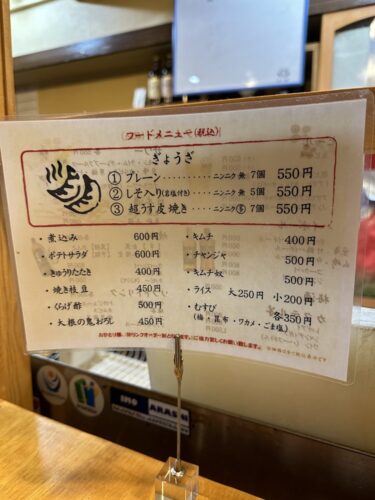 フードメニュー(税込)
ぎょうざ
① プレーン・・・・・・・・・ニンニク 無 7個 550円
② しそ入り(岩塩付き)・・・ニンニク 無 5個 550円
③ 超うす皮焼き・・・・・ニンニク 有 7個 550円
・煮込み 600円
・ポテトサラダ 600円
・きゅうりたたき 400円
・焼き枝豆 450円
・くらげ酢 500円
・大根の鬼おろし 450円
・キムチ 400円
・チャンジャ 500円
・キムチ奴 500円
・ライス 大250円 小200円
・むすび 各350円
(梅・昆布・ワカメ・ごま塩)
INO ARASHI